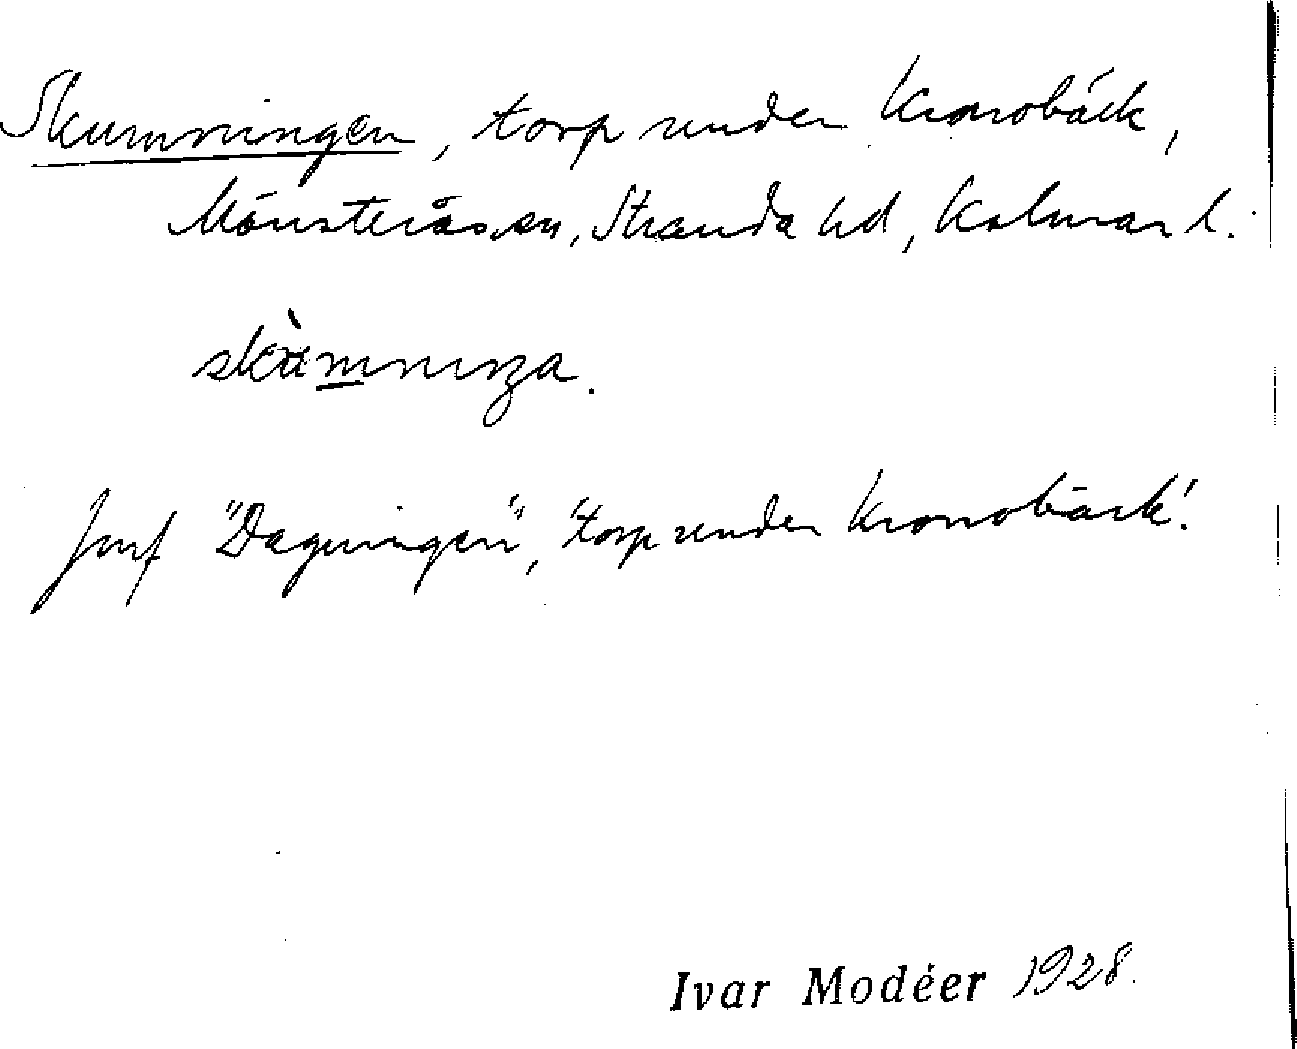 Skumningen, torp under Kronobäck,
Mönsterås sn, Stranda hd, Kalmar l.
Jmf "Dagningen", torp under Kronobäck!
Ivar Modéer 1928.